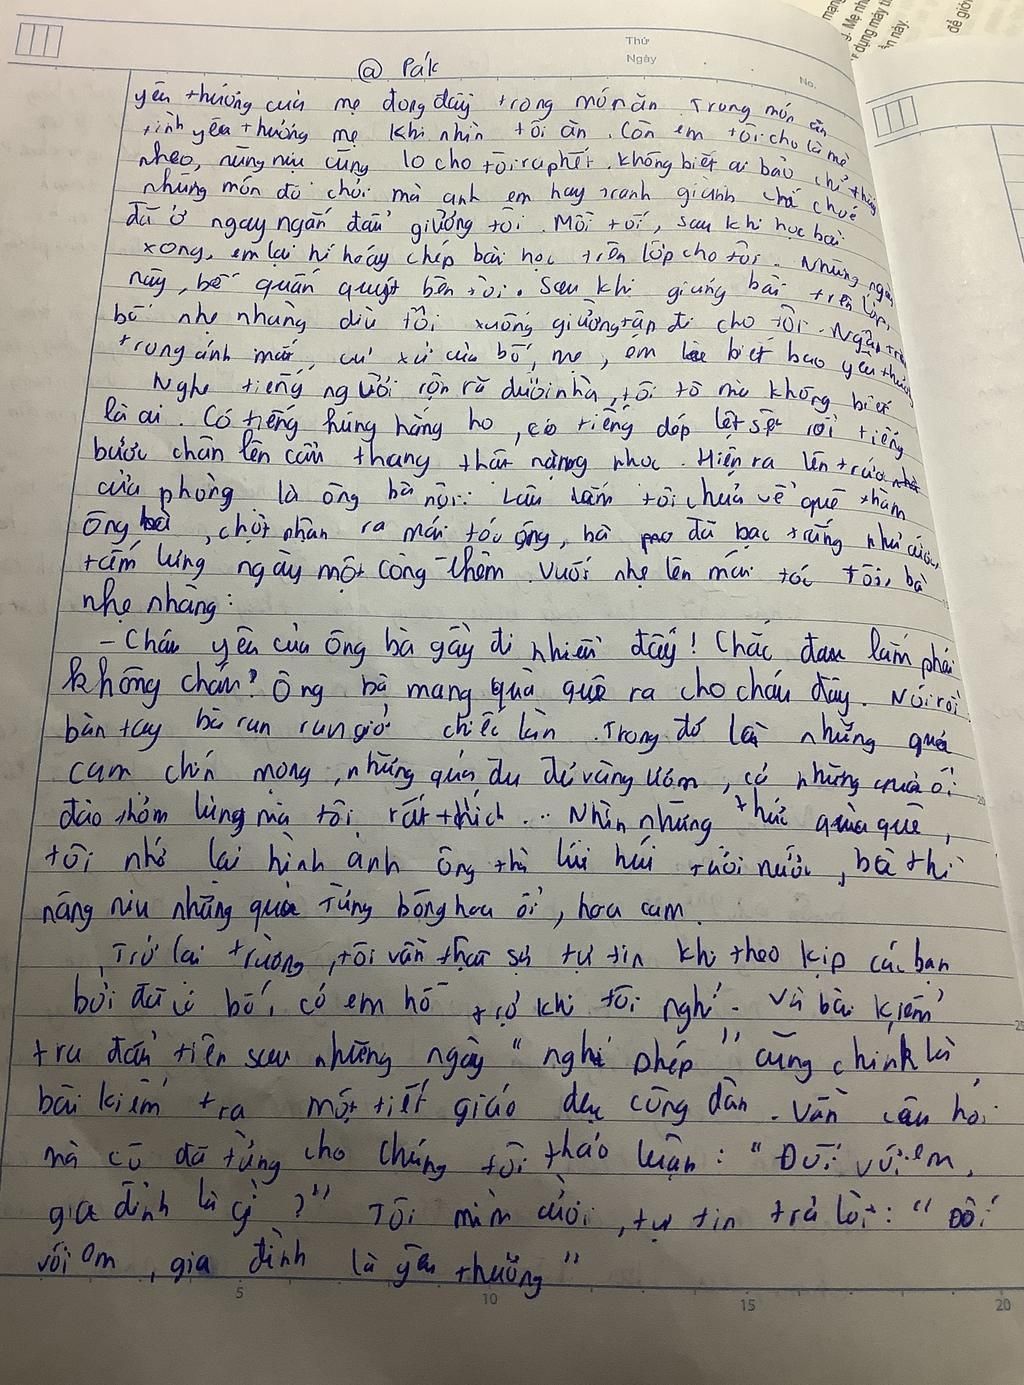 mạng
g. Mẹ nh
dụng máy t
n này.
để giới
Thứ
Ngày
No.
@ Pák
yêu thương của mẹ đong đầy trong món ăn. Trong món ăn
tình yêu thương mẹ khi nhìn tôi ăn. Còn em tôi cho là mè
nheo, nũng nịu cũng lo cho tôi ra phết. Không biết ai bảo chỉ thấy
những món đồ chơi mà anh em hay tranh giành chí choé
đã ở ngay ngắn đầu giường tôi. Mỗi tối, sau khi học bài
xong, em lại hí hoáy chép bài học trên lớp cho tôi. Những ngày
này, bố quấn quýt bên tôi. Sau khi giảng bài trên lớp,
bố nhẹ nhàng dìu tôi xuống giường tập đi cho tôi. Ngập tràn
trong ánh mắt, cư xử của bố, mẹ, em là biết bao yêu thương
Nghe tiếng người rộn rã dưới nhà, tôi tò mò không biết
là ai. Có tiếng húng hắng ho, có tiếng dép lệt sệt rồi tiếng
bước chân lên cầu thang thật nặng nhọc. Hiện ra lên trước
cửa phòng là ông bà nội. Lâu lắm tôi chưa về quê thăm
ông bà, chợt nhận ra mái tóc ông, bà đã bạc trắng như cước,
tấm lưng ngày một còng thêm. Vuốt nhẹ lên mái tóc tôi, bà
nhẹ nhàng:
- Cháu yêu của ông bà gầy đi nhiều đấy! Chắc đau lắm phải
không cháu? Ông bà mang quà quê ra cho cháu đây. Nói rồi
bàn tay bà run run giở chiếc làn. Trong đó là những quả
cam chín mọng, những quả đu đủ vàng ươm, có những quả ổi
đào thơm lừng mà tôi rất thích... Nhìn những thức quà quê,
tôi nhớ lại hình ảnh ông thì lúi húi tưới nước, bà thì
nâng niu những quả từng bông hoa ổi, hoa cam.
Trở lại trường, tôi vẫn thật sự tự tin khi theo kịp các bạn
bởi đã có bố, có em hỗ trợ khi tôi nghỉ. Và bài kiểm
tra đầu tiên sau những ngày "nghỉ phép" cũng chính là
bài kiểm tra một tiết giáo dục công dân. Vẫn câu hỏi
mà cô đã từng cho chúng tôi thảo luận: "Đối với em,
gia đình là gì?" Tôi mỉm cười, tự tin trả lời: "Đối
với em, gia đình là yêu thương"
5 10 15 20